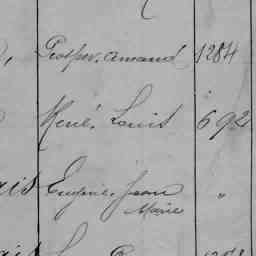 Prosper. Amand 1284
René. Louis 692
Eugène. Jean "
Marie